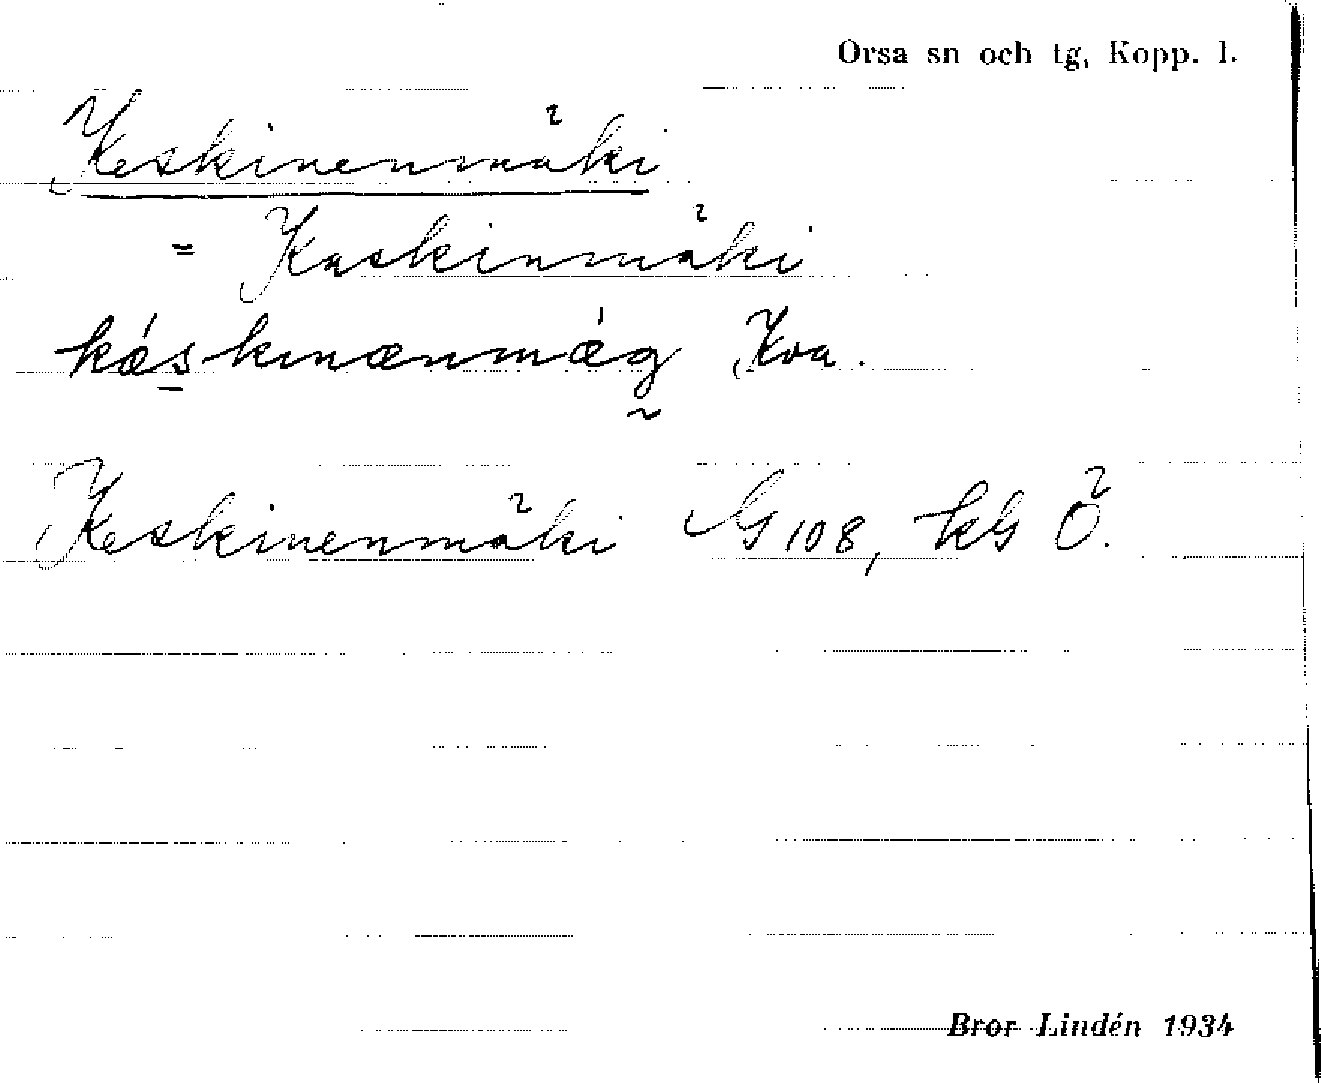 Orsa sn och tg, Kopp. l.
Keskinenmäki
= Kaskinmäki
kǽskinænmǽg Kva.
Keskinenmäki G 108, kG Ö.
Bror Lindén 1934